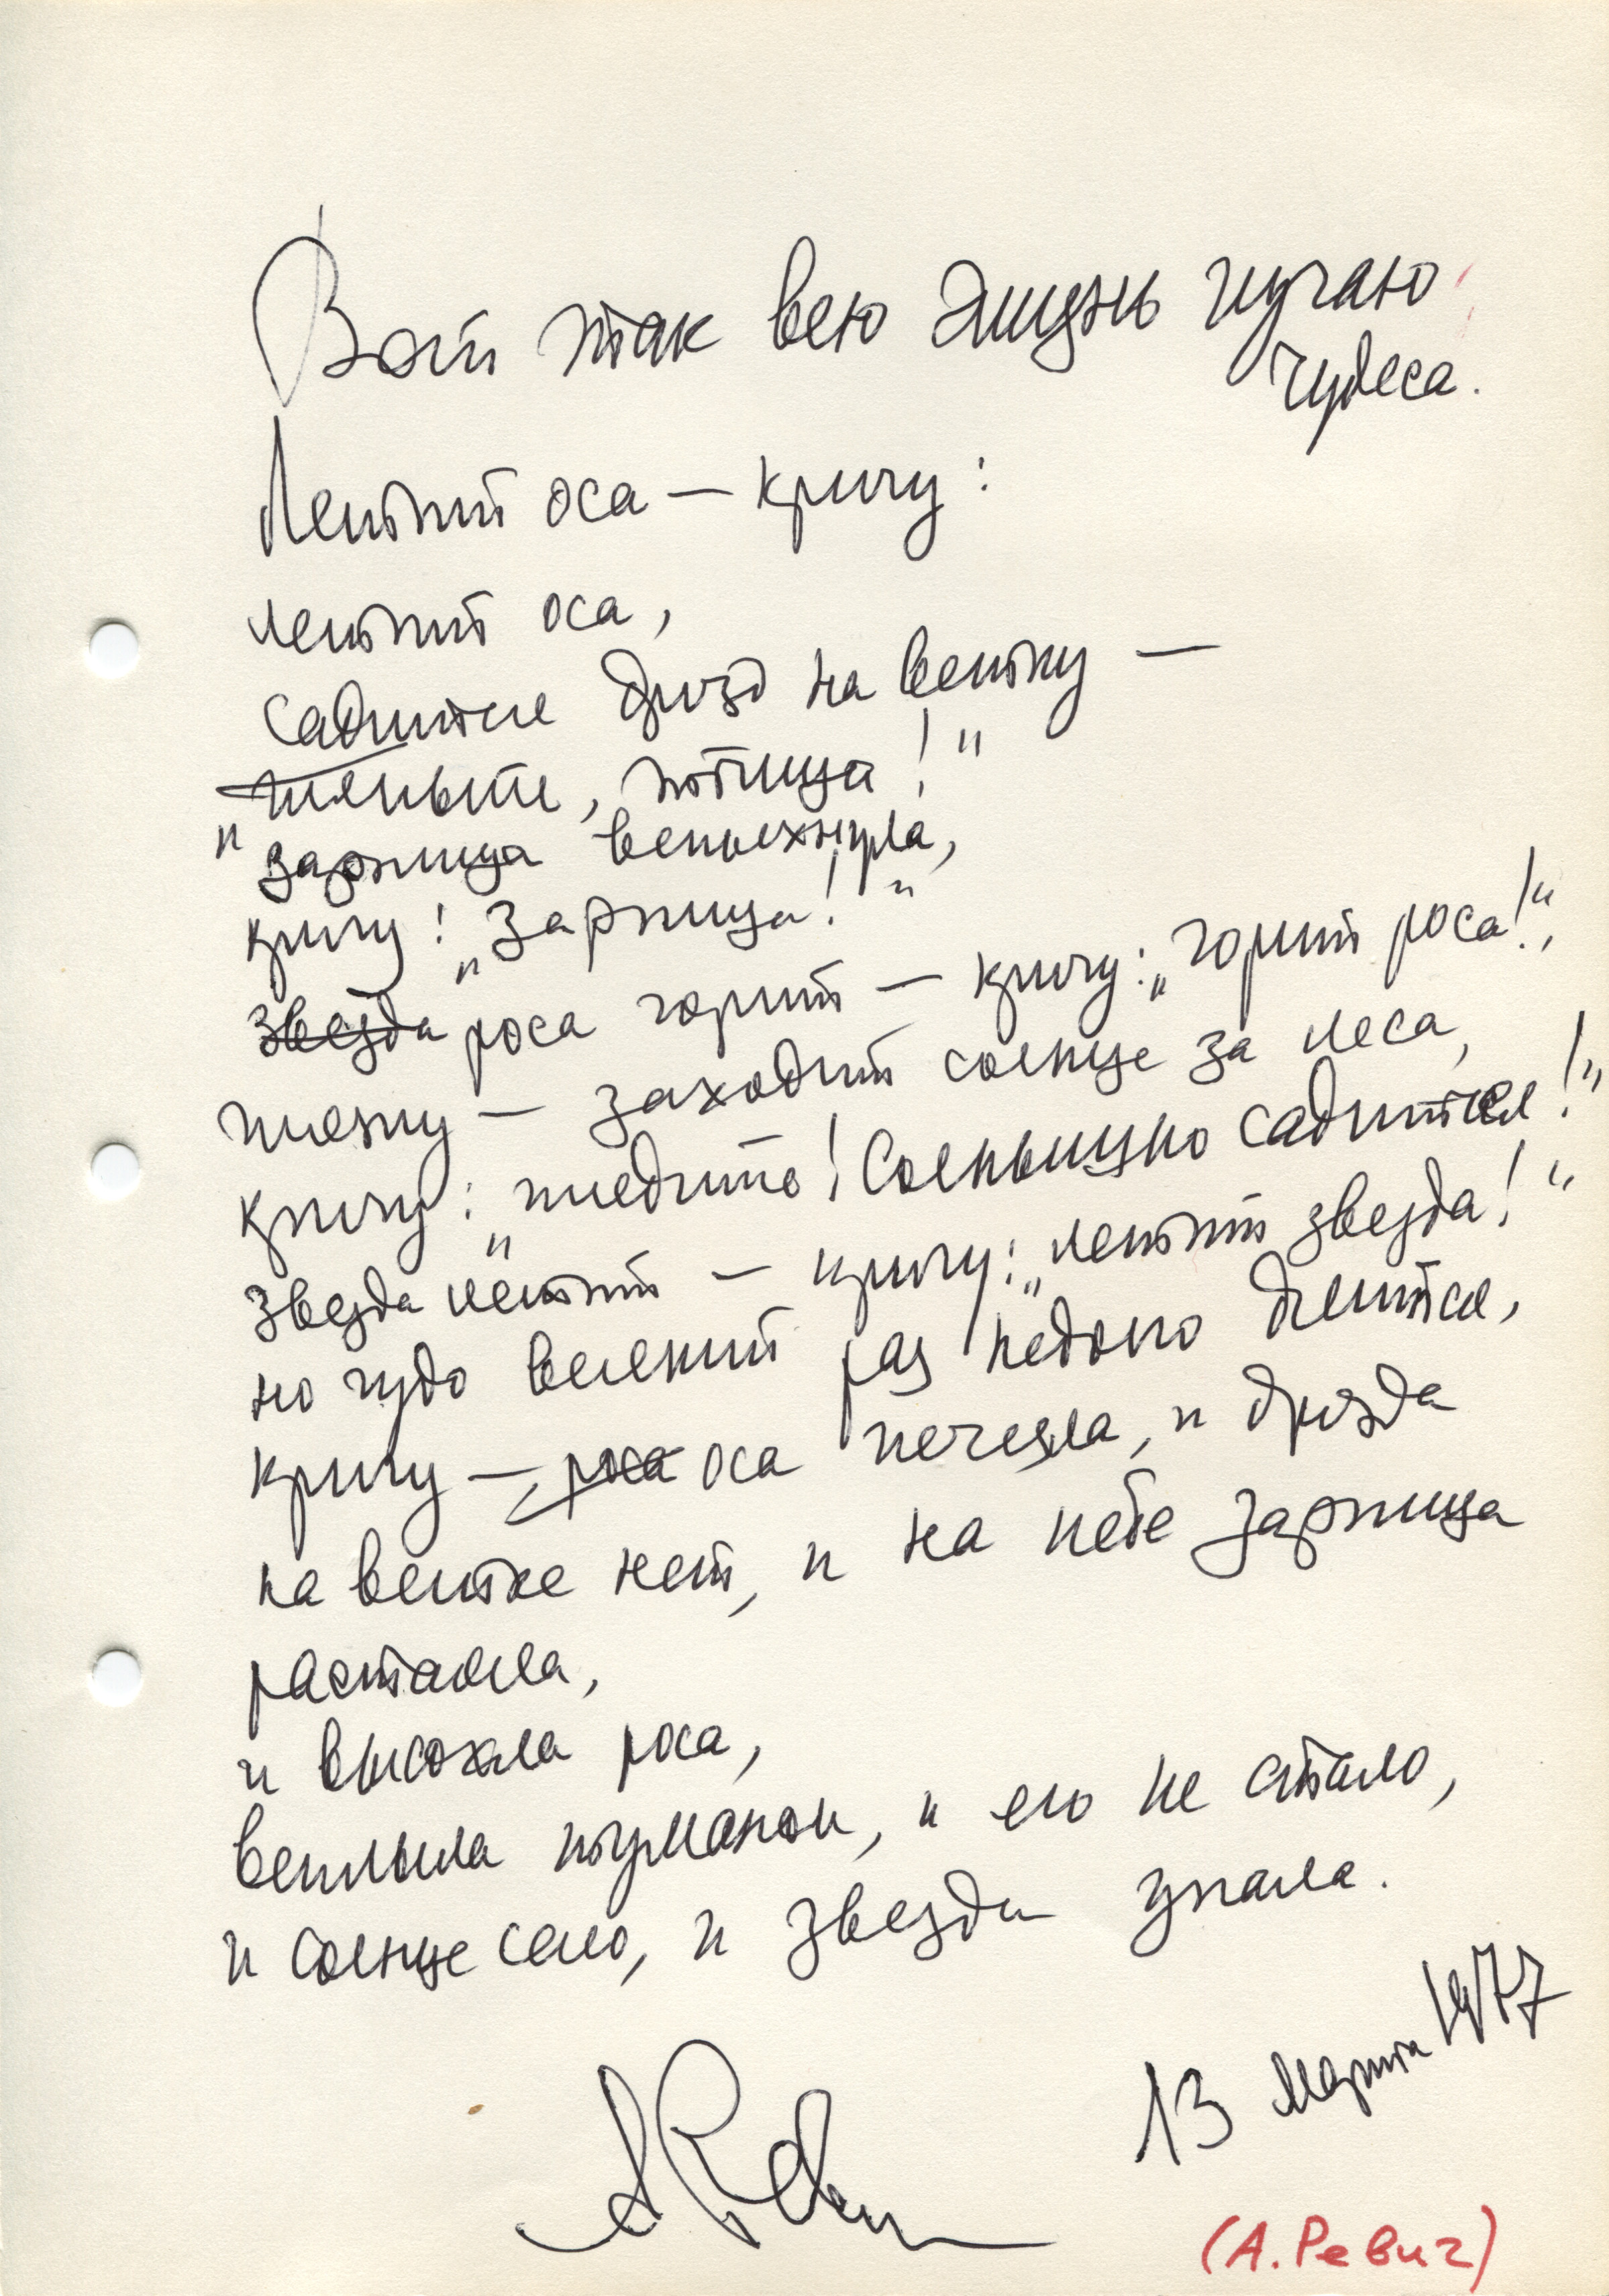 Вот так всю жизнь изучаю
чудеса.
Летит оса — кричу:
летит оса,
садится дрозд на ветку —
„гляньте, птица!"
зарница вспыхнула,
кричу: „Зарница!"
звезда роса горит — кричу: „горит роса!",
гляжу — заходит солнце за леса,
кричу: „глядите! Солнышко садится!"
звезда летит — кричу: „летит звезда!"
но чудо всякий раз недолго длится,
кричу — роса оса исчезла, и дрозда
на ветке нет, и на небе зарница
растаяла,
и высохла роса,
всплыла туманом, и его не стало,
и солнце село, и звезда упала.
13 марта 1977
(А. Ревич)